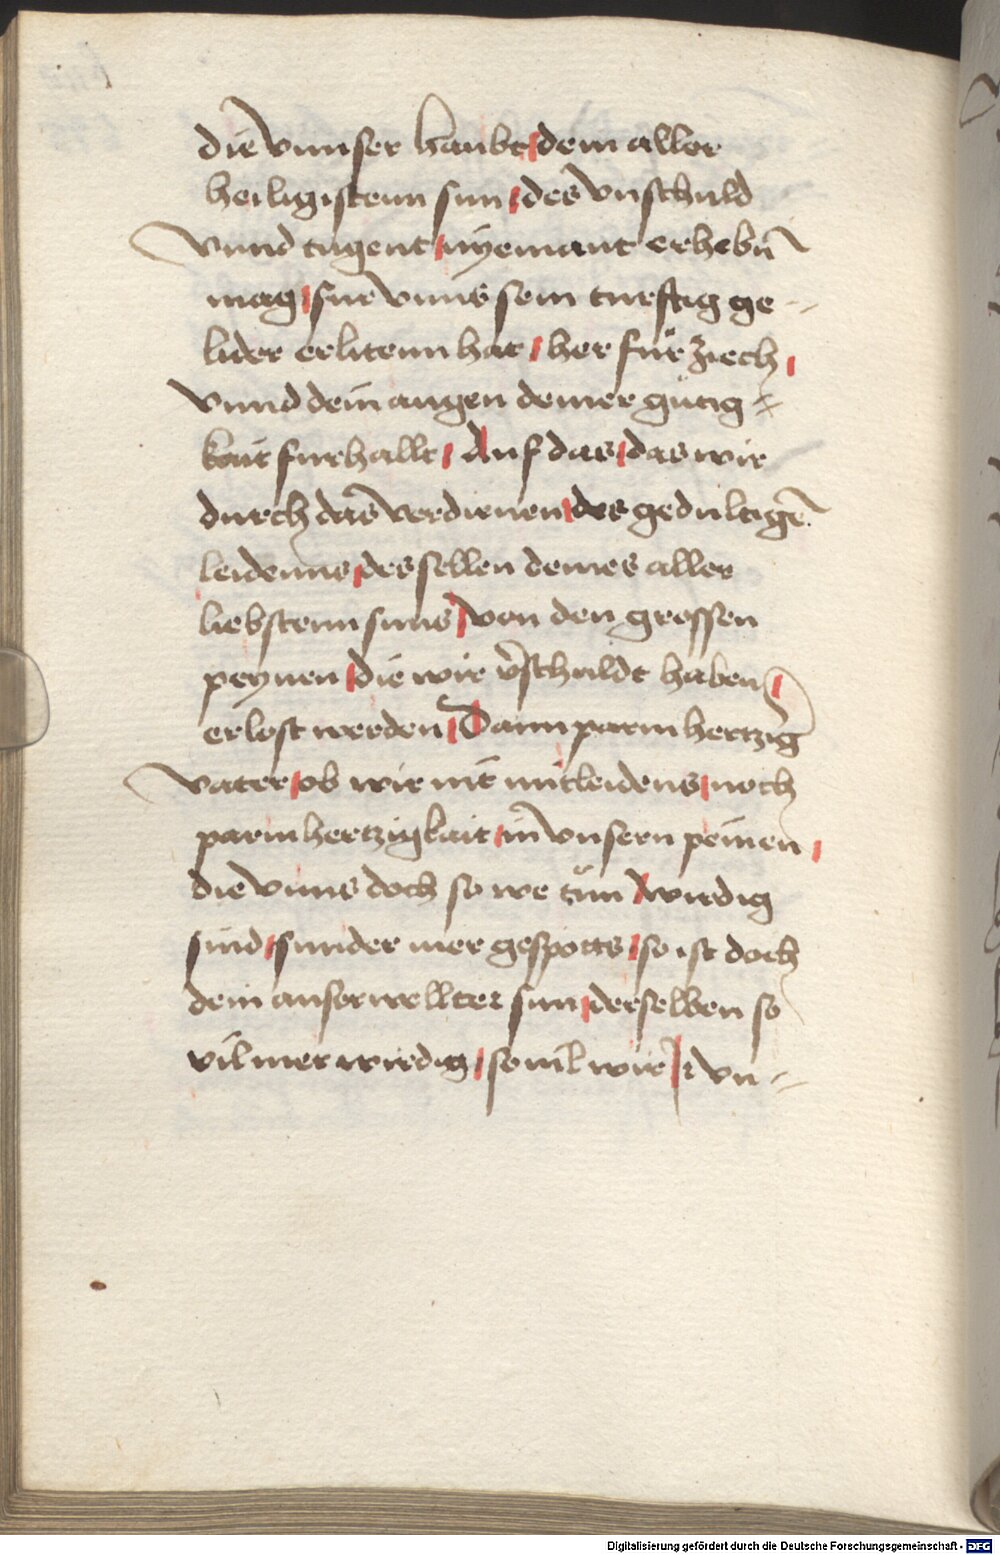 die vnnser haubt / dein aller
heiligistenn sun / des vnschuld
vnnd tugent / nyemant erhebñ
mag / für vnns sein turftig ge=
lider erlitenn hat / her für ziech /
vnnd dein augen deiner gütig=
kait furhallt / Auf das / das wir
durch das verdienen / des gedultigē
leidenns / des sellen deines aller
liebstenn suns / von den grossen
peynen / die wir v̄schuldt haben /
erlost werden / Dann parmhertzig̃
vater / ob wir nit mitleidens / noch
parmhertzigkait / in vnsern peinen /
die vnns doch so we tün / wirdig
sind / sunder mer gespotts / so ist doch
dein auserwellter sun / derselben so
vil mer wirdig / souil wir / vn=
Digitalisierung gefördert durch die Deutsche Forschungsgemeinschaft - DFG